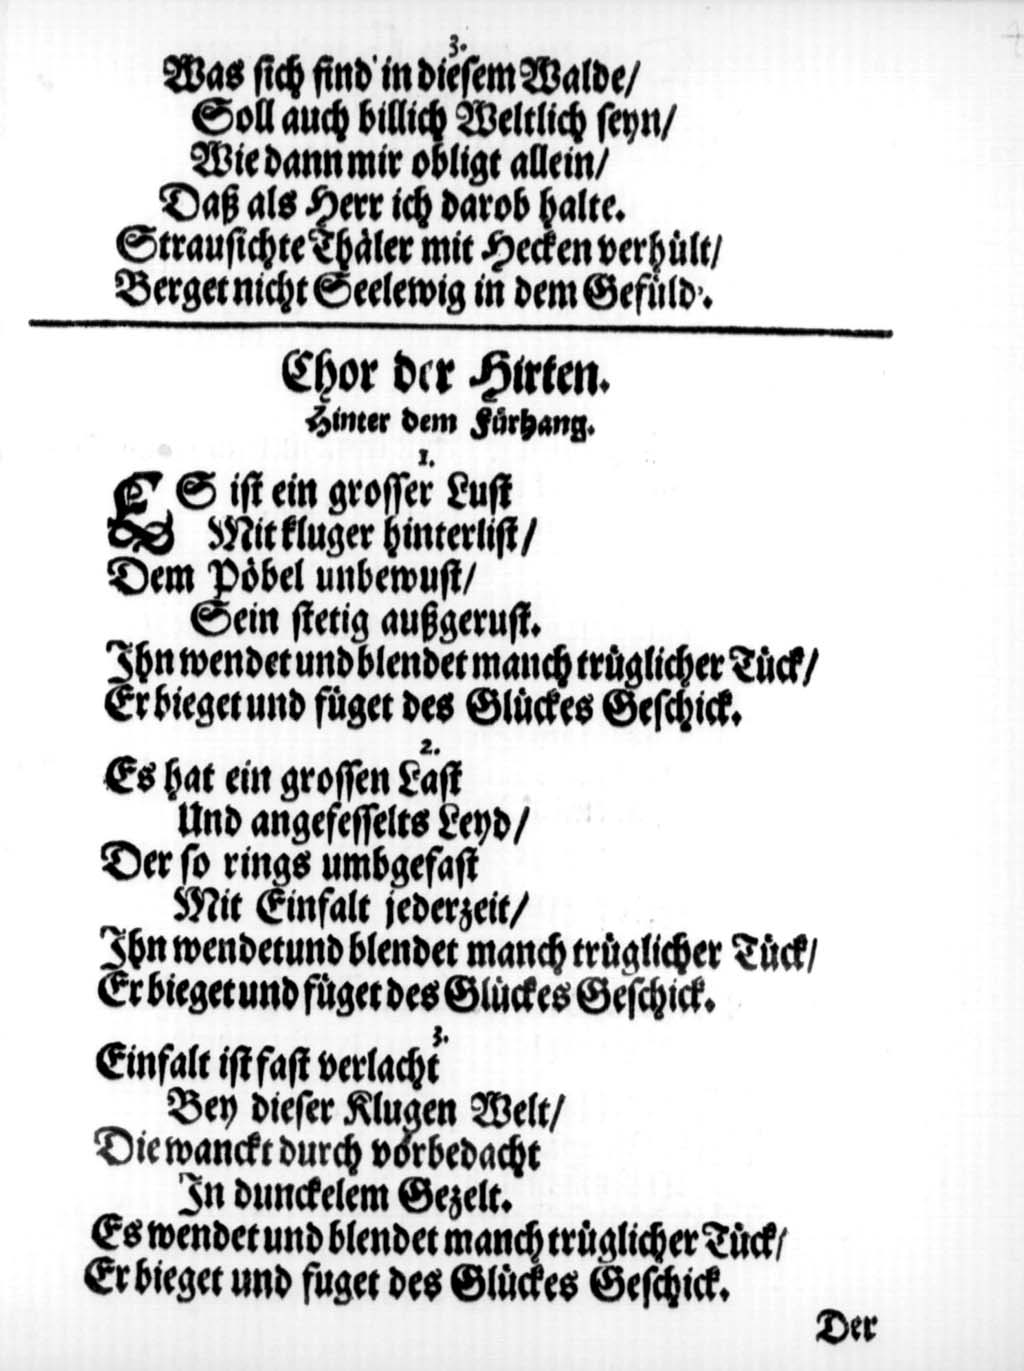 3.
Was sich find' in diesem Walde/
Soll auch billich Weltlich seyn/
Wie dann mir obligt allein/
Daß als Herr ich darob halte.
Strausichte Thäler mit Hecken verhült/
Berget nicht Seelewig in dem Gefüld'.
Chor der Hirten.
Hinter dem Fürhang.
1.
ES ist ein grosser Lust
Mit kluger hinterlist/
Dem Pöbel unbewust/
Sein stetig außgerust.
Ihn wendet und blendet manch trüglicher Tück/
Er bieget und füget des Glückes Geschick.
2.
Es hat ein grossen Last
Und angefesselts Leyd/
Der so rings umbgefast
Mit Einfalt jederzeit/
Ihn wendet und blendet manch trüglicher Tück/
Er bieget und füget des Glückes Geschick.
3.
Einfalt ist fast verlacht
Bey dieser Klugen Welt/
Die wanckt durch vorbedacht
In dunckelem Gezelt.
Es wendet und blendet manch trüglicher Tück/
Er bieget und fuget des Glückes Geschick.
Der